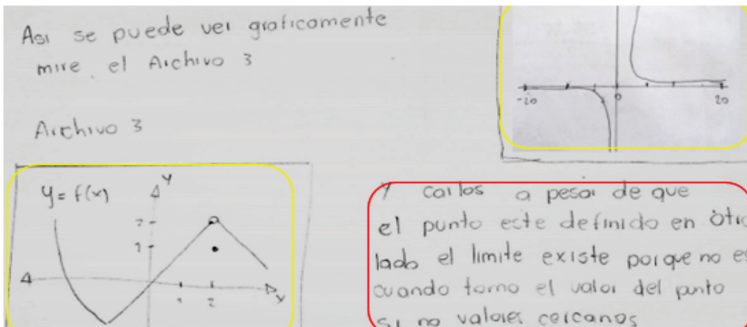 Asi se puede ver graficamente
mire el Archivo 3
Archivo 3
-20
0
20
y = f(x)
y
2
1
1
2
x
Y carlos a pesar de que
el punto este definido en otro
lado el limite existe porque no es
cuando tomo el valor del punto
si no valores cercanos